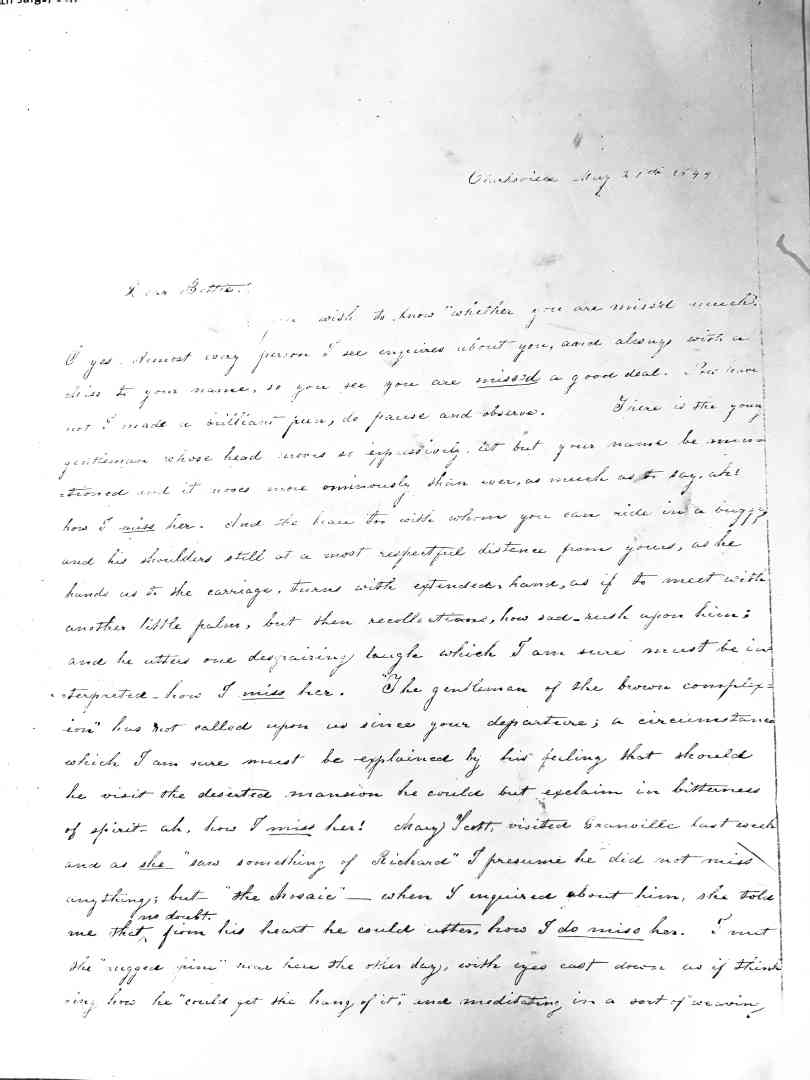 May 21th 1844
Dear Bettie!
wish to know "whether you are miss'd much".
O yes. Almost every person I see enquires about you, and always with a
Miss to your name, so you see you are miss'd a good deal. Now have
not I made a brilliant pun, do pause and observe. There is the young
gentleman whose head moves so expressively. let but your name be men=
=tioned and it moves more ominously than ever, as much as to say, ah!
how I miss her. And the beau too with whom you can ride in a buggy
and his shoulders still at a most respectful distance from yours, as he
hands us to the carriage, turns with extended hand, as if to meet with
another little palm, but then recollections, how sad_rush upon him;
and he utters one despairing laugh which I am sure must be in
=terpreted_how I miss her. "The gentleman of the brown complex=
=ion" has not called upon us since your departure; a circumstance
which I am sure must be explained by his feeling that should
he visit the deserted mansion he could but exclaim in bitterness
of spirit_ ah, how I miss her! Mary Scott, visited Granville last week
and as she "saw something of Richard" I presume he did not miss
anything; but "the Mosaic" — when I enquired about him, she told
me that, no doubt. from his heart he could utter, how I do miss her. I met
the "rugged pine" near here the other day, with eyes cast down as if think
=ing how he "could get the hang of it", and meditating in a sort of